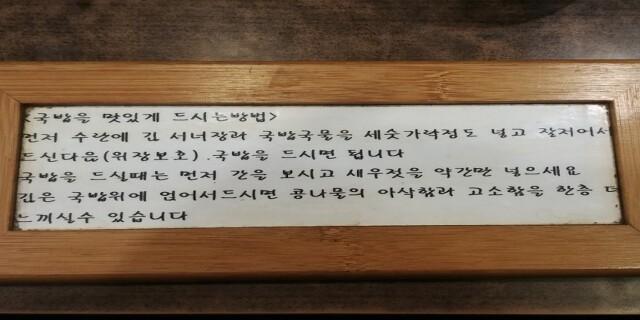 <국밥을 맛있게 드시는방법>
먼저 수란에 김 서너장과 국밥국물을 세숫가락정도 넣고 잘저어서
드신다음(위장보호).국밥을 드시면 됩니다
국밥을 드실때는 먼저 간을 보시고 새우젓을 약간만 넣으세요
김은 국밥위에 얹어서드시면 콩나물의 아삭함과 고소함을 한층 더
느끼실수 있습니다